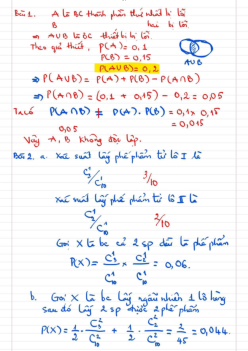 Bài 1. A là BC thành phần thứ nhất bị lỗi
B hai bị lỗi
⇒ A∪B là BC thiết bị bị lỗi
Theo giả thiết, P(A) = 0,1
P(B) = 0,15
P(A∪B) = 0,2
⇒ P(A∪B) = P(A) + P(B) - P(A∩B)
⇒ P(A∩B) = (0,1 + 0,15) - 0,2 = 0,05
Ta có P(A∩B) ≠ P(A).P(B) = 0,1 x 0,15
0,05 = 0,015
Vậy A, B không độc lập.
Bài 2. a. Xác suất lấy phế phẩm từ lô I là
C¹₃/C¹₁₀ 3/10
Xác suất lấy phế phẩm từ lô II là
C¹₂/C¹₁₀ 2/10
Gọi X là bc cả 2 sp đều là phế phẩm
P(X) = C¹₃/C¹₁₀ x C¹₂/C¹₁₀ = 0,06.
b. Gọi X là bc lấy ngẫu nhiên 1 lô hàng
sau đó lấy 2 sp được 2 phế phẩm
P(X) = 1/2 . C²₃/C²₁₀ + 1/2 . C²₂/C²₁₀ = 2/45 = 0,044.